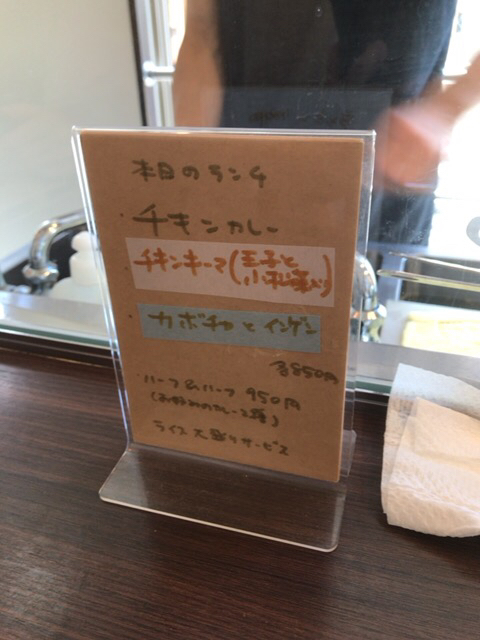 本日のランチ
・チキンカレー
・チキンキーマ(玉子と
小松菜入り)
・カボチャとインゲン
各850円
・ハーフ&ハーフ 950円
(お好みのカレー2種)
ライス大盛りサービス